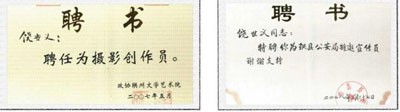 聘 书
饶世义：
聘任为摄影创作员。
政协 州文学艺术院
二〇〇七年五月
聘 书
饶世义同志：
特聘你为 县公安局 宣传员
谢谢支持